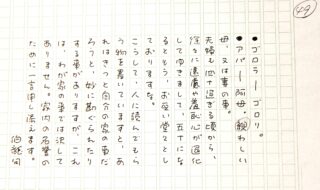 49
●ゴロラー ゴロリ。
●アバー 阿母、親わしい
母、又は妻の事。
夫婦も四十過ぎる頃から、
徐々に遠慮や羞恥心が退化
してゆきまして、五十にな
るともう、お安い堂々とし
ておりますな。
こうして、人に読んでもら
う物を書いていますと、あ
れはきっと自分の家の事だ
ろうと、妙に勘ぐられたり
する事がありますが、これ
は、わが家の事では決して
ありません。家内の名誉の
ために一言申し添えます。